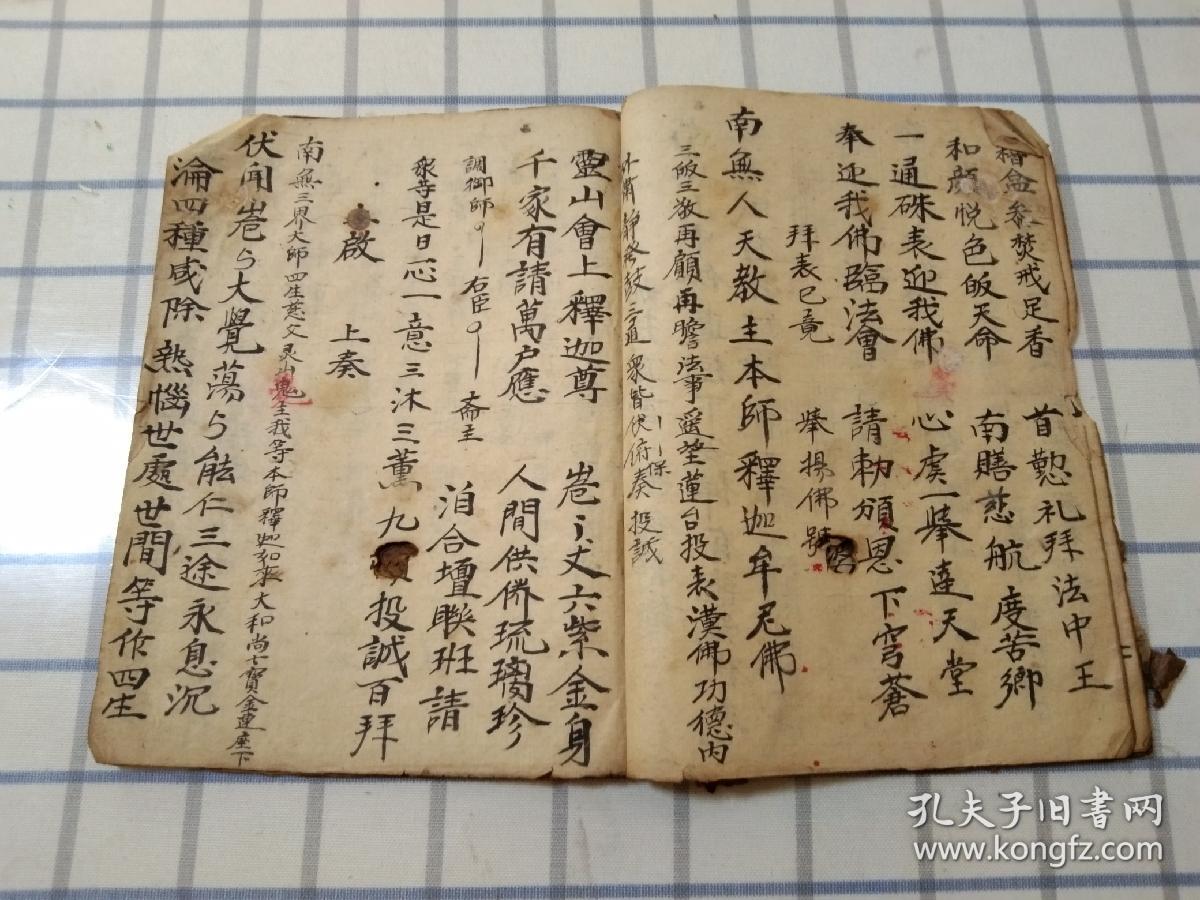 焚戒足香　首懃礼拜法中王
和顔悦色皈天命　南賻慈航度苦鄉
一通硃表迎我佛　心虔一舉達天堂
奉迎我佛臨法會　請勅頒恩下穹蒼
拜表已竟　舉揚佛號
南無人天教主本師釋迦牟尼佛
三皈三敬再顧再瞻法事遥望蓮台投表漢佛功德内
靜 鼓三通衆皆俯奏投誠
靈山會上釋迦尊　巍丶丈六紫金身
千家有請萬户應　人間供侪琉璃珍
調御師　右臣　斋主　洎合壇聮班請
衆等是日一心一意三沐三薰九 投誠百拜
啟　上奏
南無三界大師四生慈父灵山 主我等本師釋迦如來大和尚七寶金連座下
伏聞 大覺蕩 能仁三途永息沉
淪四種咸除熱惱世處世間等作四生
孔夫子旧书网
www.kongfz.com